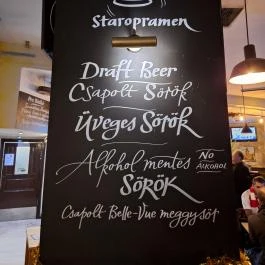 Staropramen
Draft Beer
Csapolt Sörök
Üveges Sörök
Alkohol mentes
NO
ALKOHOL
SÖRÖK
Csapolt Belle-Vue meggysör